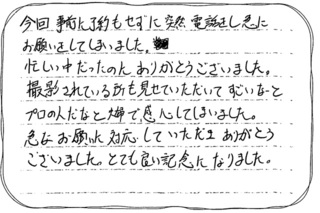 今回 事前に予約もせずに突然 電話をし急に
お願いをしてしまいました。
忙しい中だったのに ありがとうございました。
撮影されている所も見せていただいて すごいなーと
プロの人だなと 夫婦で感心してしまいました。
急な お願いに対応していただき ありがとう
ございました。とても良い記念になりました。